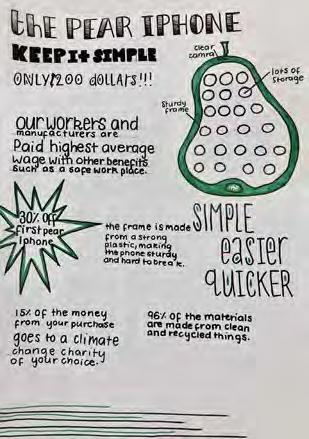 the PEAR IPHONE
KEEP It SIMPLE
ONLY 1200 dollars!!!
clear
camra
lots of
storage
Sturdy
frame
our workers and
manufacturers are
Paid highest average
wage with other benefits
such as a safe work place.
30% off
first pear
Iphone
the frame is made
from a strong
plastic, making
the phone sturdy
and hard to break.
SIMPLE
easier
QUICKER
15% of the money
from your purchase
goes to a climate
change charity
of your choice.
96% of the materials
are made from clean
and recycled things.